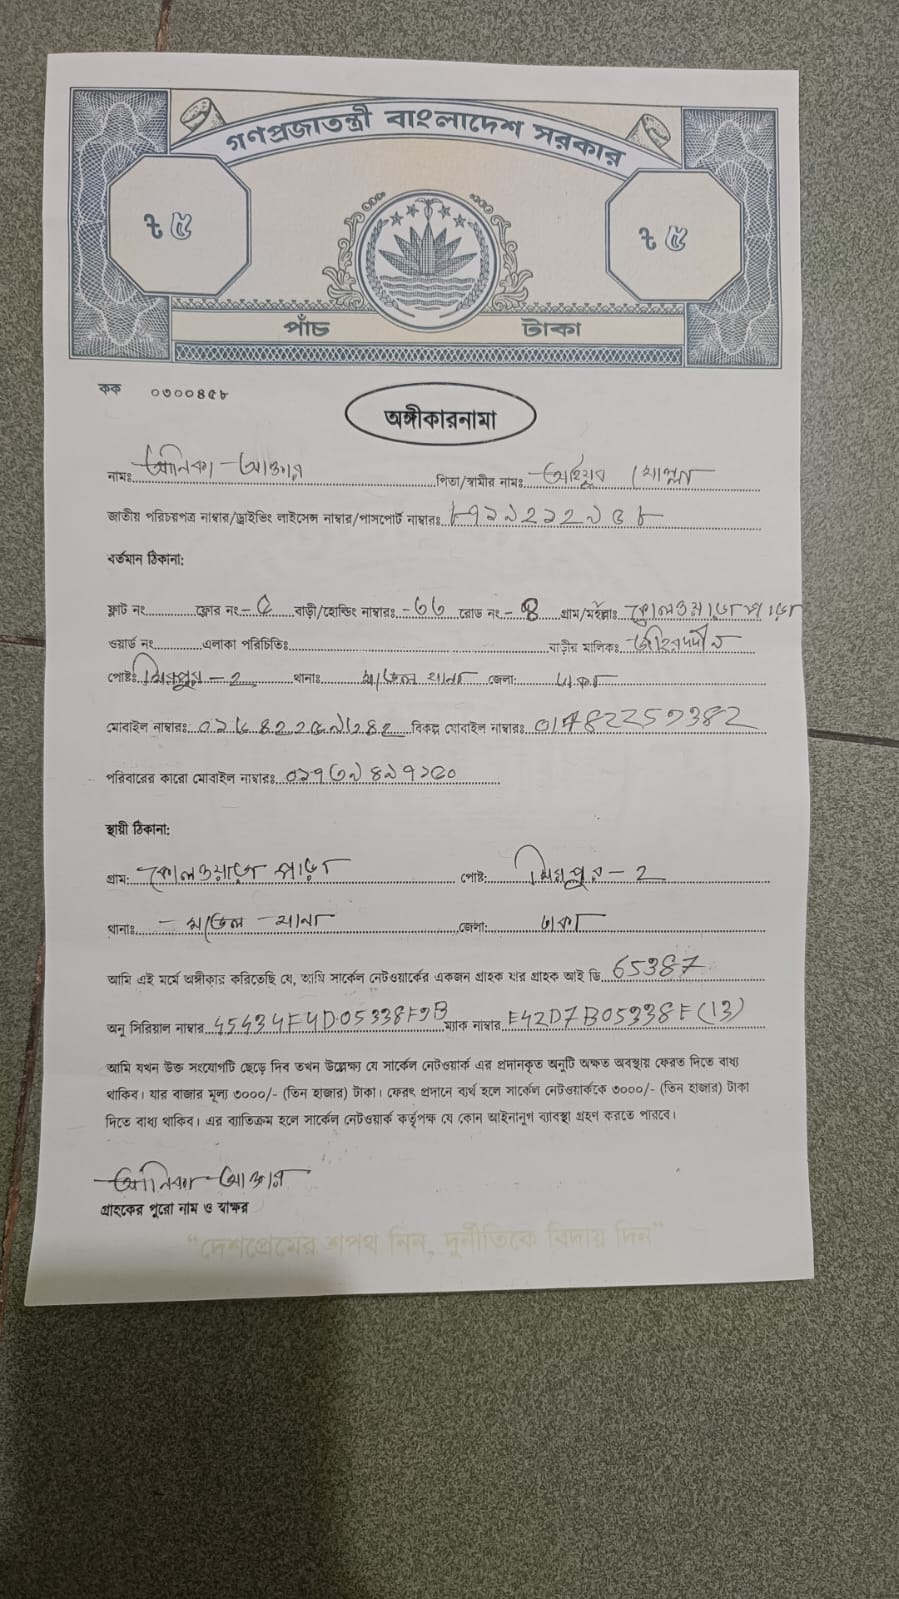 গণপ্রজাতন্ত্রী বাংলাদেশ সরকার
৳ ৫ ৳ ৫
পাঁচ টাকা
কক ০৩০০৪৫৮
অঙ্গীকারনামা
নামঃ আনিকা আক্তার পিতা/স্বামীর নামঃ আইয়ুব মোল্লা
জাতীয় পরিচয়পত্র নাম্বার/ড্রাইভিং লাইসেন্স নাম্বার/পাসপোর্ট নাম্বারঃ
বর্তমান ঠিকানা:
ফ্লাট নং ফ্লোর নং - ৫ বাড়ী/হোল্ডিং নাম্বারঃ - ৬৬ রোড নং - ৪ গ্রাম/মহল্লাঃ
ওয়ার্ড নং এলাকা পরিচিতিঃ বাড়ীর মালিকঃ
পোষ্টঃ মিরপুর - 2 থানাঃ মডেল থানা জেলা: ঢাকা
মোবাইল নাম্বারঃ বিকল্প মোবাইল নাম্বারঃ
পরিবারের কারো মোবাইল নাম্বারঃ
স্থায়ী ঠিকানা:
গ্রাম: পাড়া পোষ্ট: মিরপুর - 2
থানাঃ - মডেল - থানা জেলা: ঢাকা
আমি এই মর্মে অঙ্গীকার করিতেছি যে, আমি সার্কেল নেটওয়ার্কের একজন গ্রাহক যার গ্রাহক আই ডি 65387
অনু সিরিয়াল নাম্বার ম্যাক নাম্বার E42D7B05338E (13)
আমি যখন উক্ত সংযোগটি ছেড়ে দিব তখন উল্লেক্ষ্য যে সার্কেল নেটওয়ার্ক এর প্রদানকৃত অনুটি অক্ষত অবস্থায় ফেরত দিতে বাধ্য
থাকিব। যার বাজার মূল্য ৩০০০/- (তিন হাজার) টাকা। ফেরৎ প্রদানে ব্যর্থ হলে সার্কেল নেটওয়ার্ককে ৩০০০/- (তিন হাজার) টাকা
দিতে বাধ্য থাকিব। এর ব্যতিক্রম হলে সার্কেল নেটওয়ার্ক কর্তৃপক্ষ যে কোন আইনানুগ ব্যাবস্থা গ্রহণ করতে পারবে।
আনিকা আক্তার
গ্রাহকের পুরো নাম ও স্বাক্ষর
"দেশপ্রেমের শপথ নিন, দুর্নীতিকে বিদায় দিন"